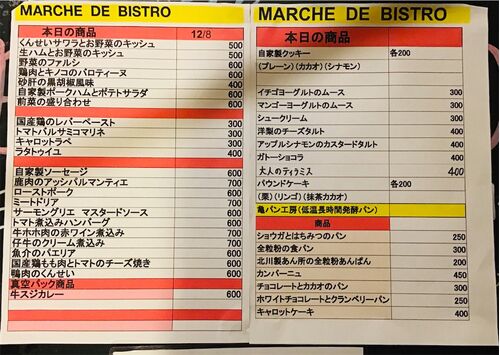 MARCHE DE BISTRO
本日の商品 12/8
くんせいサワラとお野菜のキッシュ 500
生ハムとお野菜のキッシュ 500
野菜のファルシ 500
鶏肉とキノコのバロティーヌ 600
砂肝の黒胡椒風味 400
自家製ポークハムとポテトサラダ 600
前菜の盛り合わせ 600
国産鶏のレバーペースト 300
トマトバルサミコマリネ 300
キャロットラペ 300
ラタトゥイユ 400
自家製ソーセージ 600
鹿肉のアッシパルマンティエ 700
ローストポーク 600
ミートドリア 600
サーモングリエ マスタードソース 600
トマト煮込みハンバーグ 700
牛ホホ肉の赤ワイン煮込み 700
仔牛のクリーム煮込み 700
魚介のパエリア 600
国産鶏もも肉とトマトのチーズ焼き 600
鴨肉のくんせい 600
真空パック商品
牛スジカレー 600
MARCHE DE BISTRO
本日の商品
自家製クッキー 各200
(プレーン)(カカオ)(シナモン)
イチゴヨーグルトのムース 300
マンゴーヨーグルトのムース 300
シュークリーム 300
洋梨のチーズタルト 400
アップルシナモンのカスタードタルト 400
ガトーショコラ 400
大人のティラミス 400
パウンドケーキ 各200
(栗)(リンゴ)(抹茶カカオ)
亀パン工房(低温長時間発酵パン)
商品
ショウガとはちみつのパン 250
全粒粉の食パン 300
北川製あん所の全粒粉あんぱん 200
カンパーニュ 450
チョコレートとカカオのパン 300
ホワイトチョコレートとクランベリーパン 250
キャロットケーキ 400